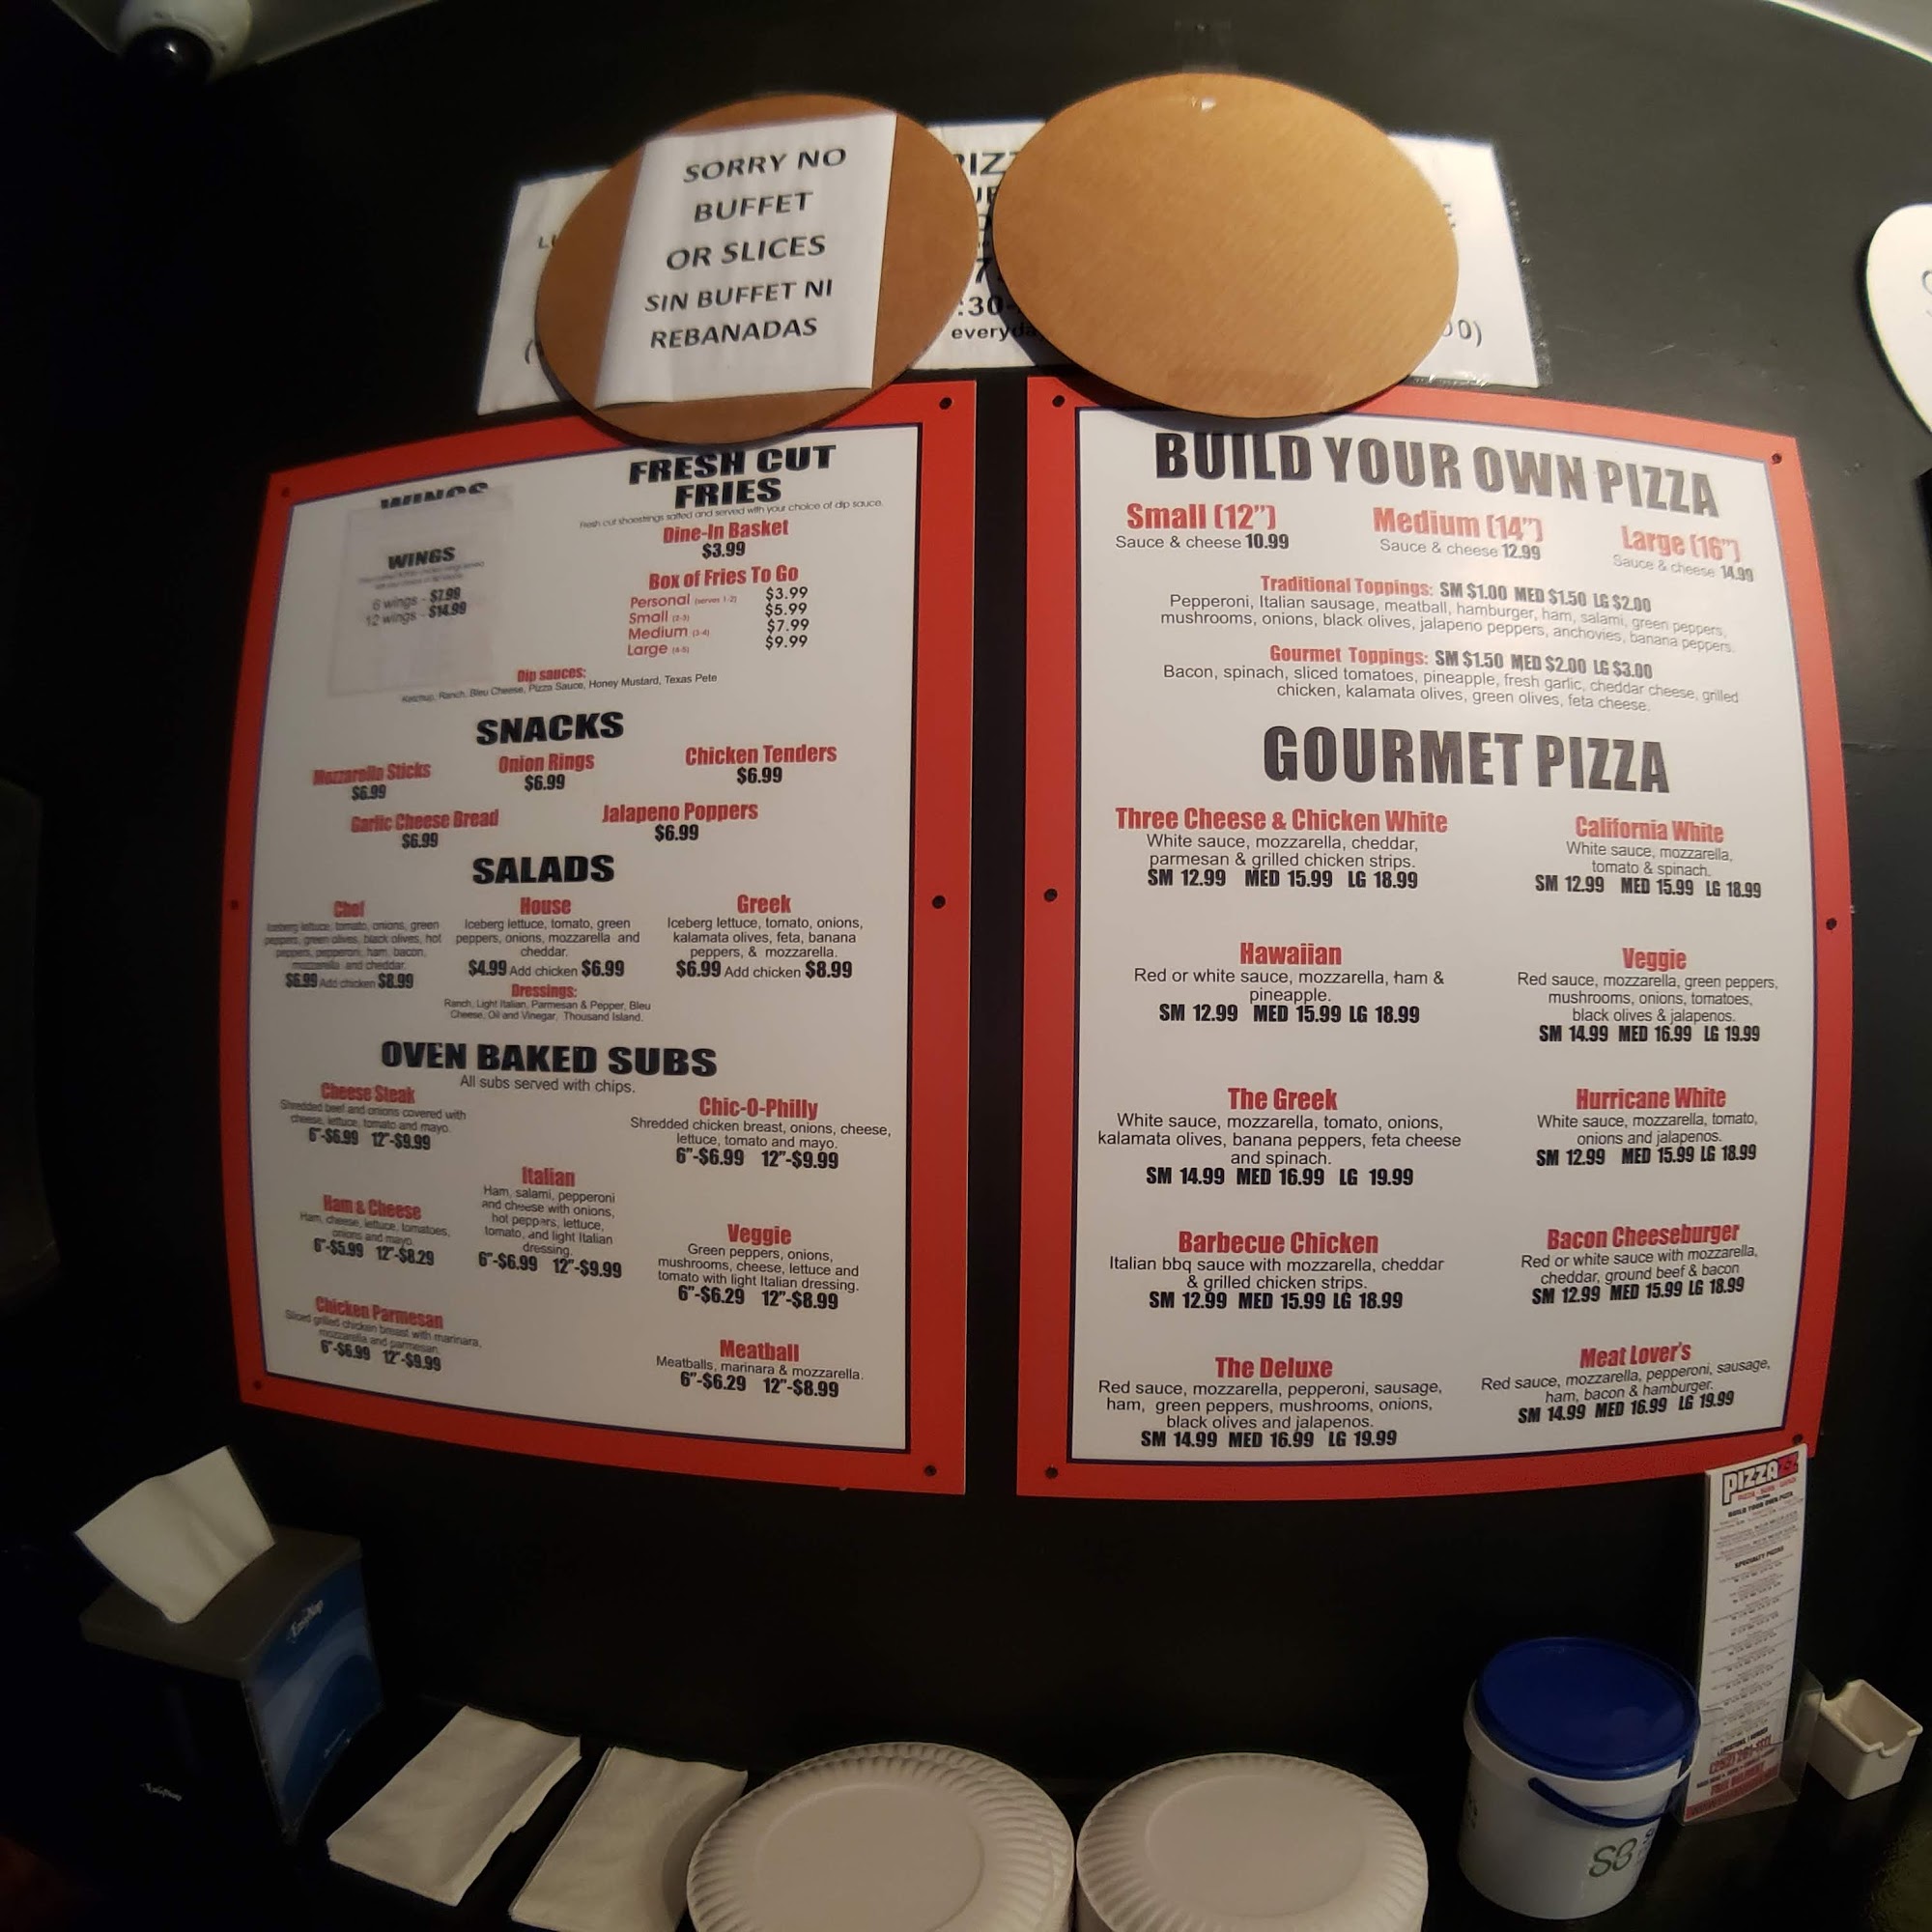 SORRY NO
BUFFET
OR SLICES
SIN BUFFET NI
REBANADAS
:30-
WINGS
WINGS
6 wings - $7.99
12 wings - $14.99
FRESH CUT
FRIES
Fresh cut shoestrings salted and served with your choice of dip sauce.
Dine-In Basket
$3.99
Box of Fries To Go
Personal (serves 1-2) $3.99
Small (2-3) $5.99
Medium (3-4) $7.99
Large (4-5) $9.99
Dip sauces:
Ketchup, Ranch, Bleu Cheese, Pizza Sauce, Honey Mustard, Texas Pete
SNACKS
Mozzarella Sticks
$6.99
Onion Rings
$6.99
Chicken Tenders
$6.99
Garlic Cheese Bread
$6.99
Jalapeno Poppers
$6.99
SALADS
Chef
Iceberg lettuce, tomato, onions, green
peppers, green olives, black olives, hot
peppers, pepperoni, ham, bacon,
mozzarella and cheddar.
$6.99 Add chicken $8.99
House
Iceberg lettuce, tomato, green
peppers, onions, mozzarella and
cheddar.
$4.99 Add chicken $6.99
Greek
Iceberg lettuce, tomato, onions,
kalamata olives, feta, banana
peppers, & mozzarella.
$6.99 Add chicken $8.99
Dressings:
Ranch, Light Italian, Parmesan & Pepper, Bleu
Cheese, Oil and Vinegar, Thousand Island.
OVEN BAKED SUBS
All subs served with chips.
Cheese Steak
Shredded beef and onions covered with
cheese, lettuce, tomato and mayo.
6"-$6.99 12"-$9.99
Chic-O-Philly
Shredded chicken breast, onions, cheese,
lettuce, tomato and mayo.
6"-$6.99 12"-$9.99
Italian
Ham, salami, pepperoni
and cheese with onions,
hot peppers, lettuce,
tomato, and light Italian
dressing.
6"-$6.99 12"-$9.99
Ham & Cheese
Ham, cheese, lettuce, tomatoes,
onions and mayo.
6"-$5.99 12"-$8.29
Veggie
Green peppers, onions,
mushrooms, cheese, lettuce and
tomato with light Italian dressing.
6"-$6.29 12"-$8.99
Chicken Parmesan
Sliced grilled chicken breast with marinara,
mozzarella and parmesan.
6"-$6.99 12"-$9.99
Meatball
Meatballs, marinara & mozzarella.
6"-$6.29 12"-$8.99
BUILD YOUR OWN PIZZA
Small (12")
Sauce & cheese 10.99
Medium (14")
Sauce & cheese 12.99
Large (16")
Sauce & cheese 14.99
Traditional Toppings: SM $1.00 MED $1.50 LG $2.00
Pepperoni, Italian sausage, meatball, hamburger, ham, salami, green peppers,
mushrooms, onions, black olives, jalapeno peppers, anchovies, banana peppers.
Gourmet Toppings: SM $1.50 MED $2.00 LG $3.00
Bacon, spinach, sliced tomatoes, pineapple, fresh garlic, cheddar cheese, grilled
chicken, kalamata olives, green olives, feta cheese.
GOURMET PIZZA
Three Cheese & Chicken White
White sauce, mozzarella, cheddar,
parmesan & grilled chicken strips.
SM 12.99 MED 15.99 LG 18.99
California White
White sauce, mozzarella,
tomato & spinach.
SM 12.99 MED 15.99 LG 18.99
Hawaiian
Red or white sauce, mozzarella, ham &
pineapple.
SM 12.99 MED 15.99 LG 18.99
Veggie
Red sauce, mozzarella, green peppers,
mushrooms, onions, tomatoes,
black olives & jalapenos.
SM 14.99 MED 16.99 LG 19.99
The Greek
White sauce, mozzarella, tomato, onions,
kalamata olives, banana peppers, feta cheese
and spinach.
SM 14.99 MED 16.99 LG 19.99
Hurricane White
White sauce, mozzarella, tomato,
onions and jalapenos.
SM 12.99 MED 15.99 LG 18.99
Barbecue Chicken
Italian bbq sauce with mozzarella, cheddar
& grilled chicken strips.
SM 12.99 MED 15.99 LG 18.99
Bacon Cheeseburger
Red or white sauce with mozzarella,
cheddar, ground beef & bacon
SM 12.99 MED 15.99 LG 18.99
The Deluxe
Red sauce, mozzarella, pepperoni, sausage,
ham, green peppers, mushrooms, onions,
black olives and jalapenos.
SM 14.99 MED 16.99 LG 19.99
Meat Lover's
Red sauce, mozzarella, pepperoni, sausage,
ham, bacon & hamburger.
SM 14.99 MED 16.99 LG 19.99
PIZZAZZ
BUILD YOUR OWN PIZZA
SPECIALTY PIZZA
EasyNap
SB